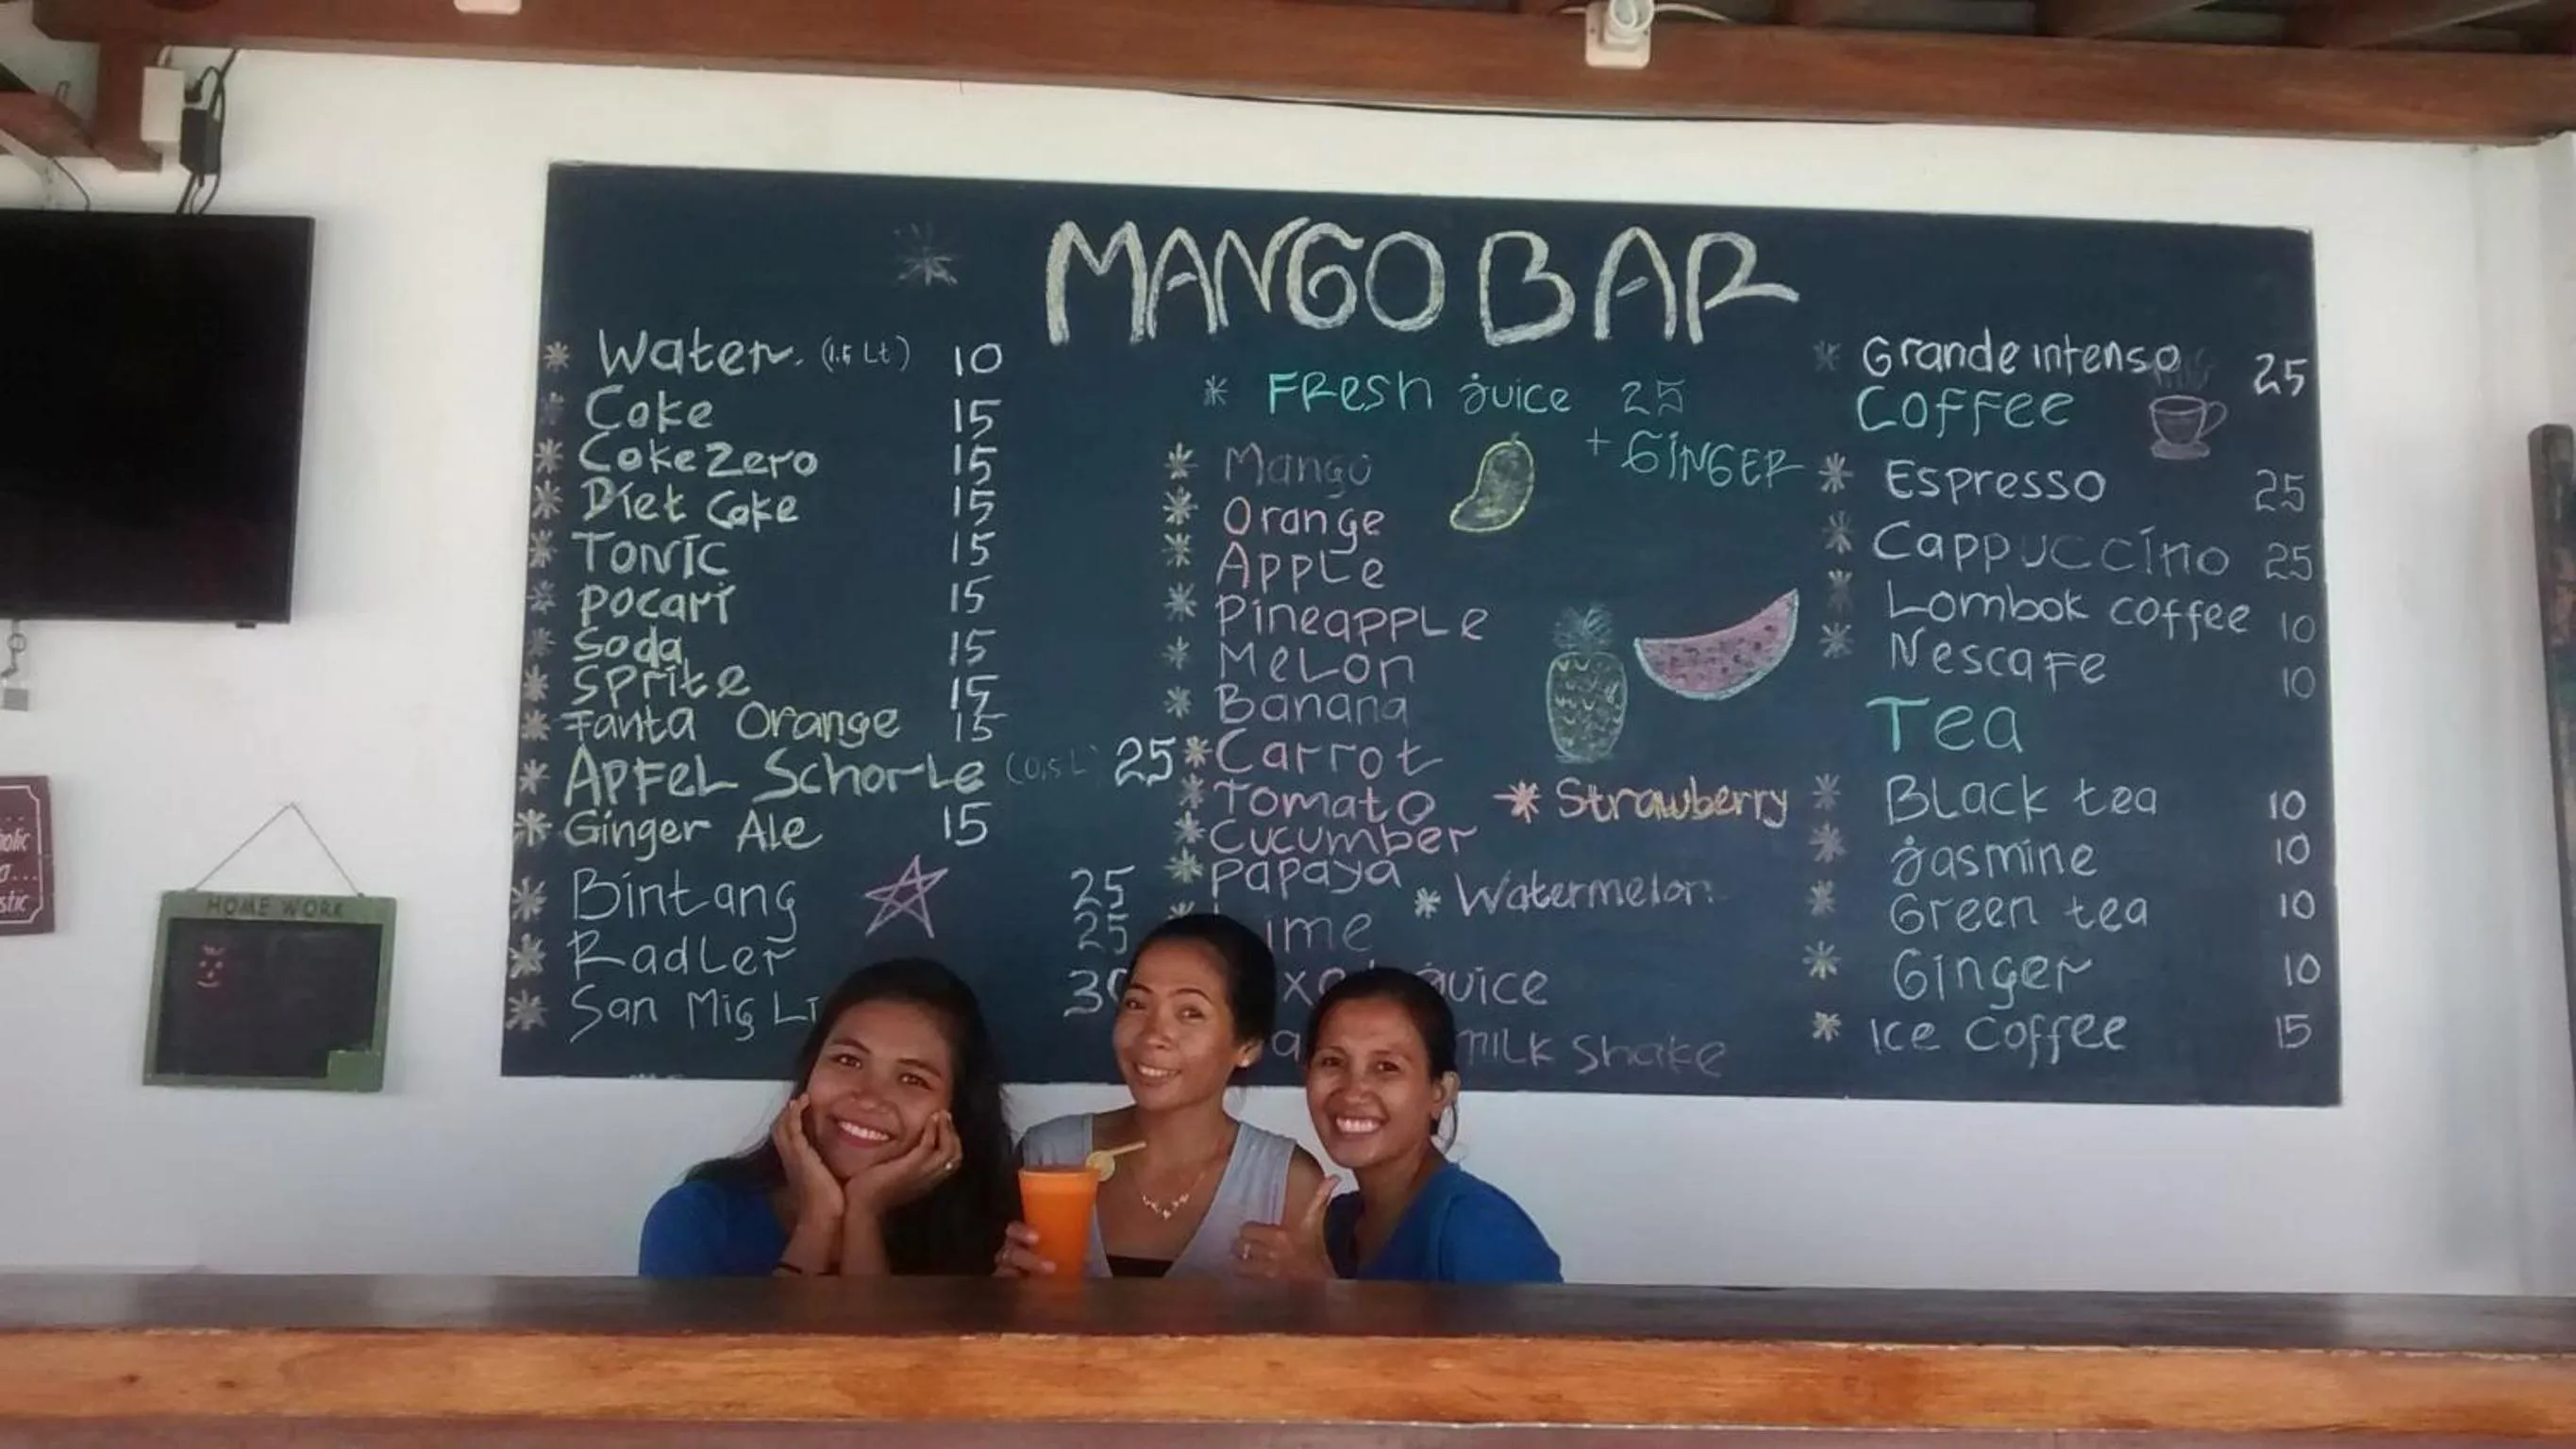 MANGO BAR
Water. (1.5 Lt) 10
Coke 15
Coke Zero 15
Diet Coke 15
TONIC 15
pocari 15
Soda 15
Sprite 15
Fanta Orange 15
APFEL SchorLe (0,5 L) 25
Ginger Ale 15
Bintang 25
RadLer 25
San Mig
Fresh juice 25
+ GINGER
Mango
Orange
APPLe
PineaPPLe
MeLon
Banana
Carrot
Tomato
Strawberry
Cucumber
papaya
Watermelon
ime
juice
MILK Shake
Grande intenso 25
Coffee
Espresso 25
Cappuccino 25
Lombok coffee 10
Nescafe 10
Tea
BLack tea 10
jasmine 10
Green tea 10
Ginger 10
Ice Coffee 15
HOME WORK